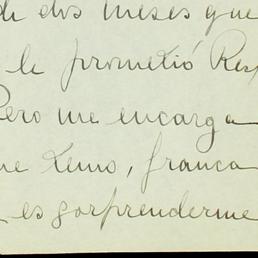 de dos meses que
le prometió Rex
Pero me encarga
ne temo, franca
es sorprenderme